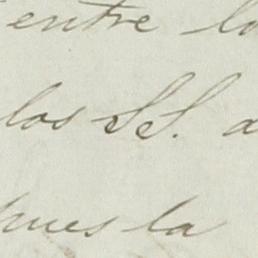 entre lo
los SS. a
pues la